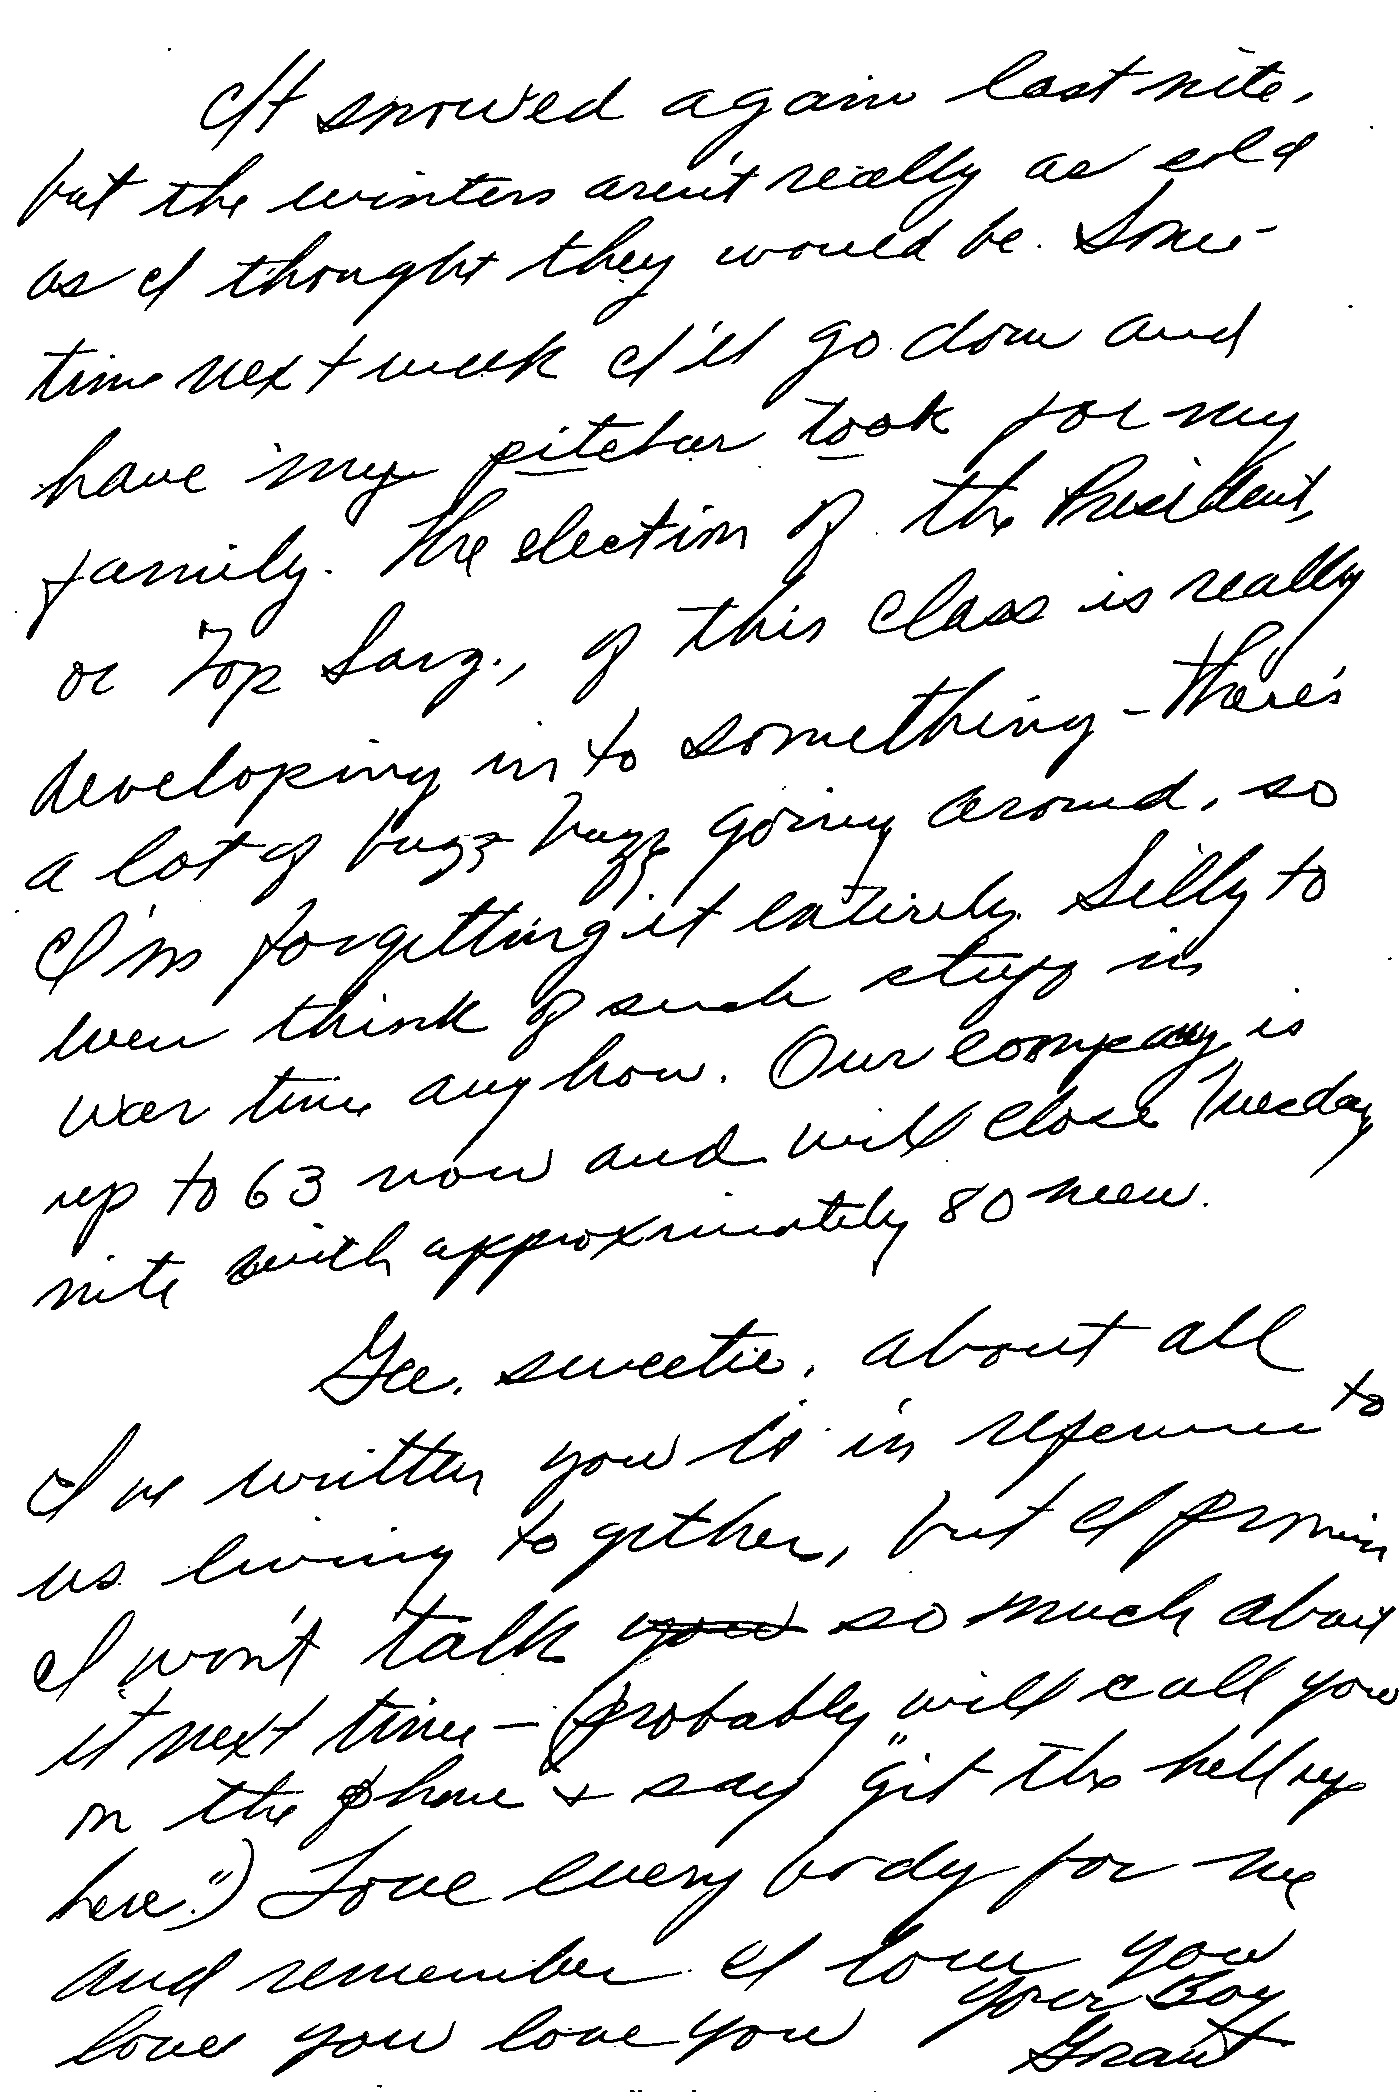 It snowed again last nite,
but the winters aren't really as cold
as I thought they would be. Some-
time next week I'll go down and
have my pitchur took for my
family. The election of the President,
or Top Sarg., of this class is really
developing in to something - there's
a lot of bugz buzz going around, so
I'm forgetting it entirely. Silly to
even think of such stuff in
war time anyhow. Our company is
up to 63 now and will close Tuesday
nite with approximately 80 men.
Gee, sweetie, about all
I've written you is in reference to
us living together, but I promise
I won't talk so much about
it next time - (probably will call you
on the phone & say "git the hell up
here.") Love every body for me
and remember I love you
love you love you Your Boy
Grant